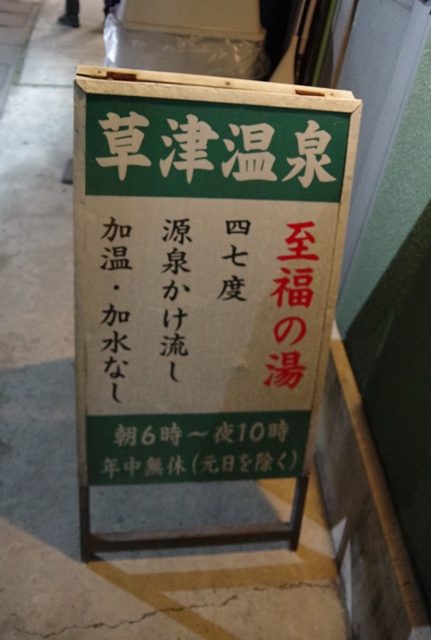 草津温泉
至福の湯
四七度
源泉かけ流し
加温・加水なし
朝6時～夜10時
年中無休(元日を除く)